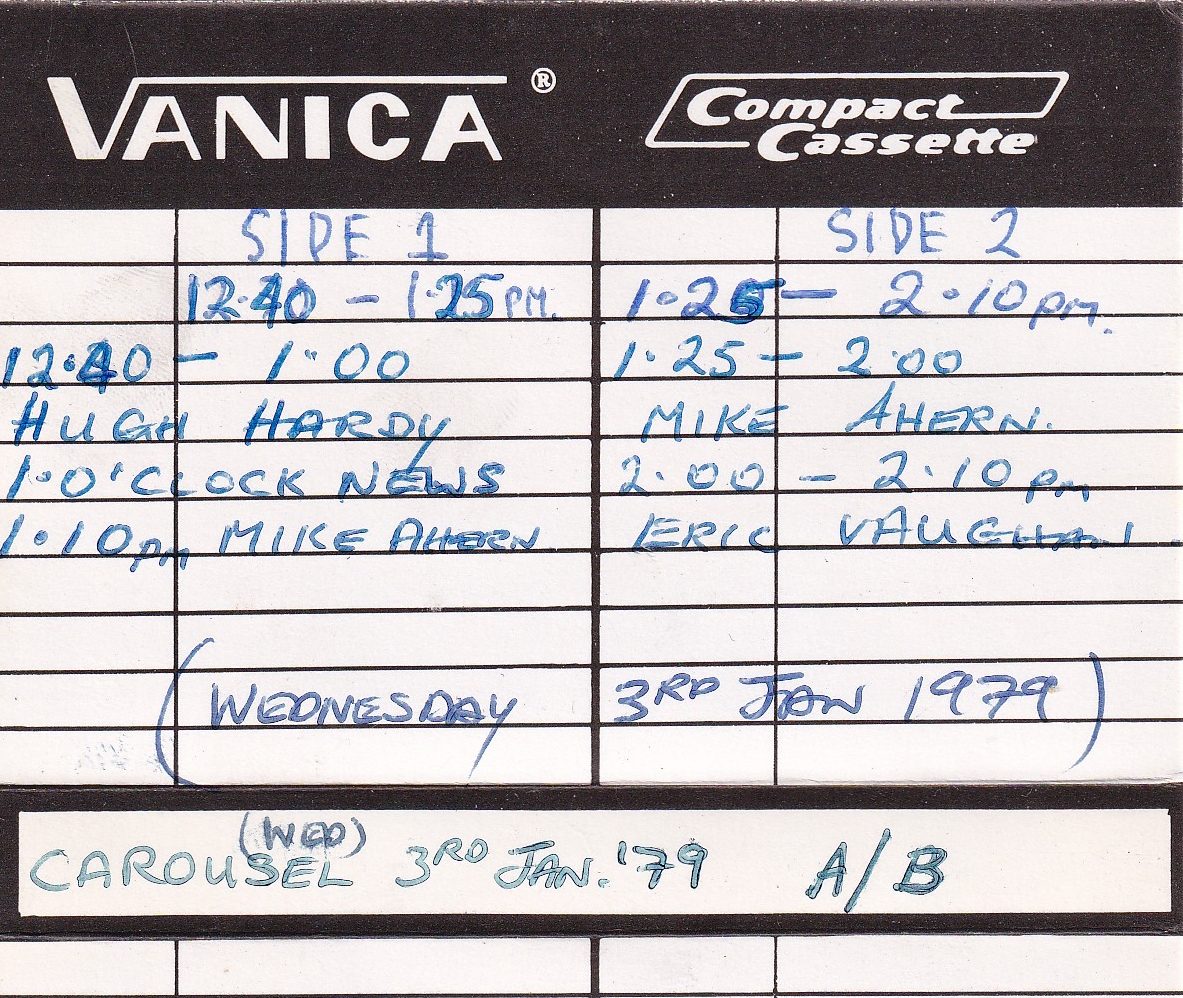 VANICA ® Compact Cassette
SIDE 1
12.40 - 1.25 PM.
12.40 - 1.00
HUGH HARDY
1.0'CLOCK NEWS
1.10pm MIKE AHERN
SIDE 2
1.25 - 2.10pm.
1.25 - 2.00
MIKE AHERN.
2.00 - 2.10 pm
ERIC VAUGHAN.
(WEDNESDAY 3RD JAN 1979)
(WED)
CAROUSEL 3RD JAN. '79 A/B